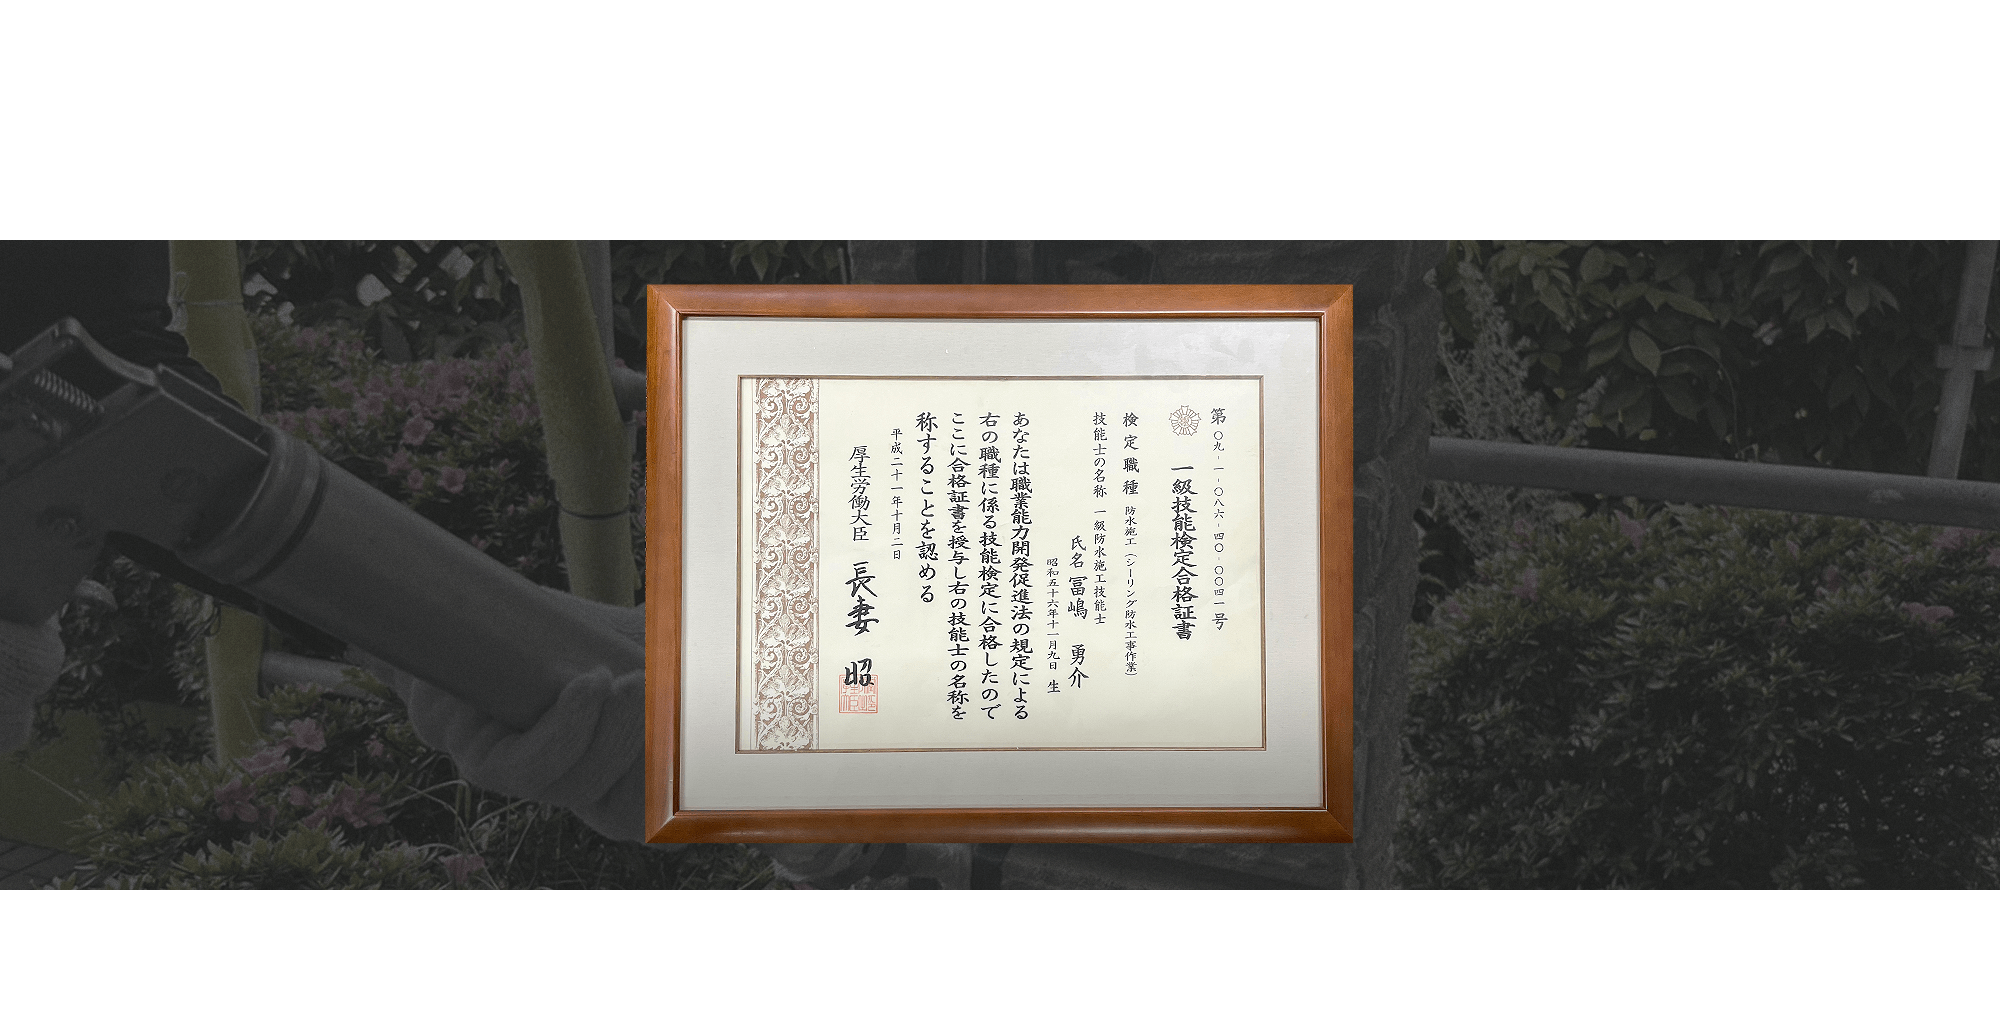 第〇九-一-〇八六-四〇-〇〇四一号
一級技能検定合格証書
検定職種 防水施工（シーリング防水工事作業）
技能士の名称 一級防水施工技能士
氏名 冨嶋 勇介
昭和五十六年十一月九日 生
あなたは職業能力開発促進法の規定による
右の職種に係る技能検定に合格したので
ここに合格証書を授与し右の技能士の名称を
称することを認める
平成二十一年十月二日
厚生労働大臣 長妻 昭